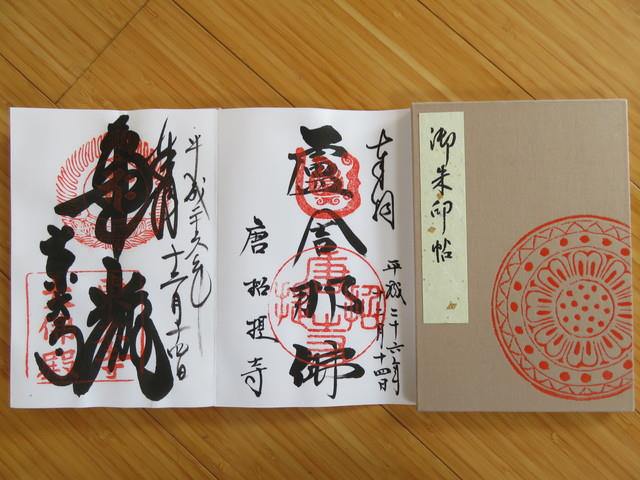 御朱印帖
奉拝
平成二十六年
月十四日
盧舎那佛
唐招提寺
奉拝
平成二十六年
十二月十四日
華厳
東大寺